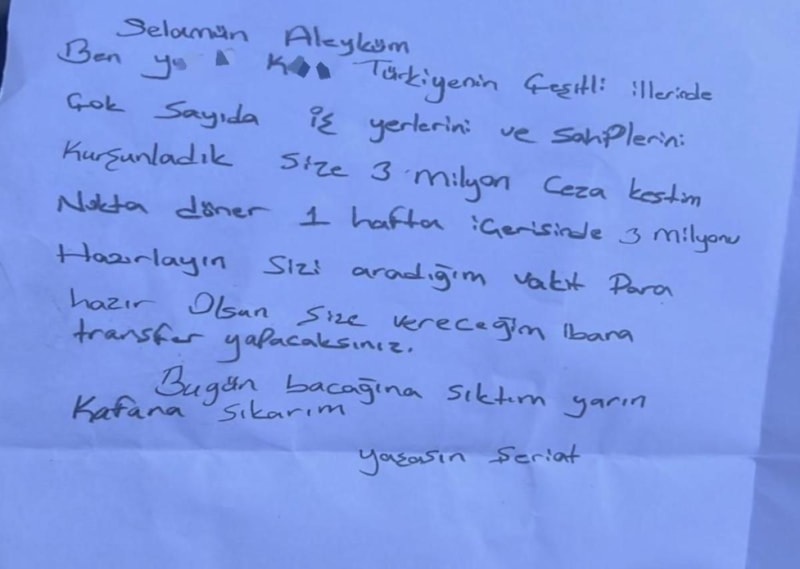 Selamün Aleyküm
Ben Türkiyenin Çeşitli illerinde
Çok Sayıda iş yerlerini ve sahiplerini
Kurşunladık Size 3 milyon Ceza kestim
Nokta döner 1 hafta içerisinde 3 milyonu
Hazırlayın Sizi aradığım vakit Para
hazır Olsun Size vereceğim Ibana
transfer yapacaksınız.
Bugün bacağına sıktım yarın
Kafana sıkarım
yaşasın Şeriat